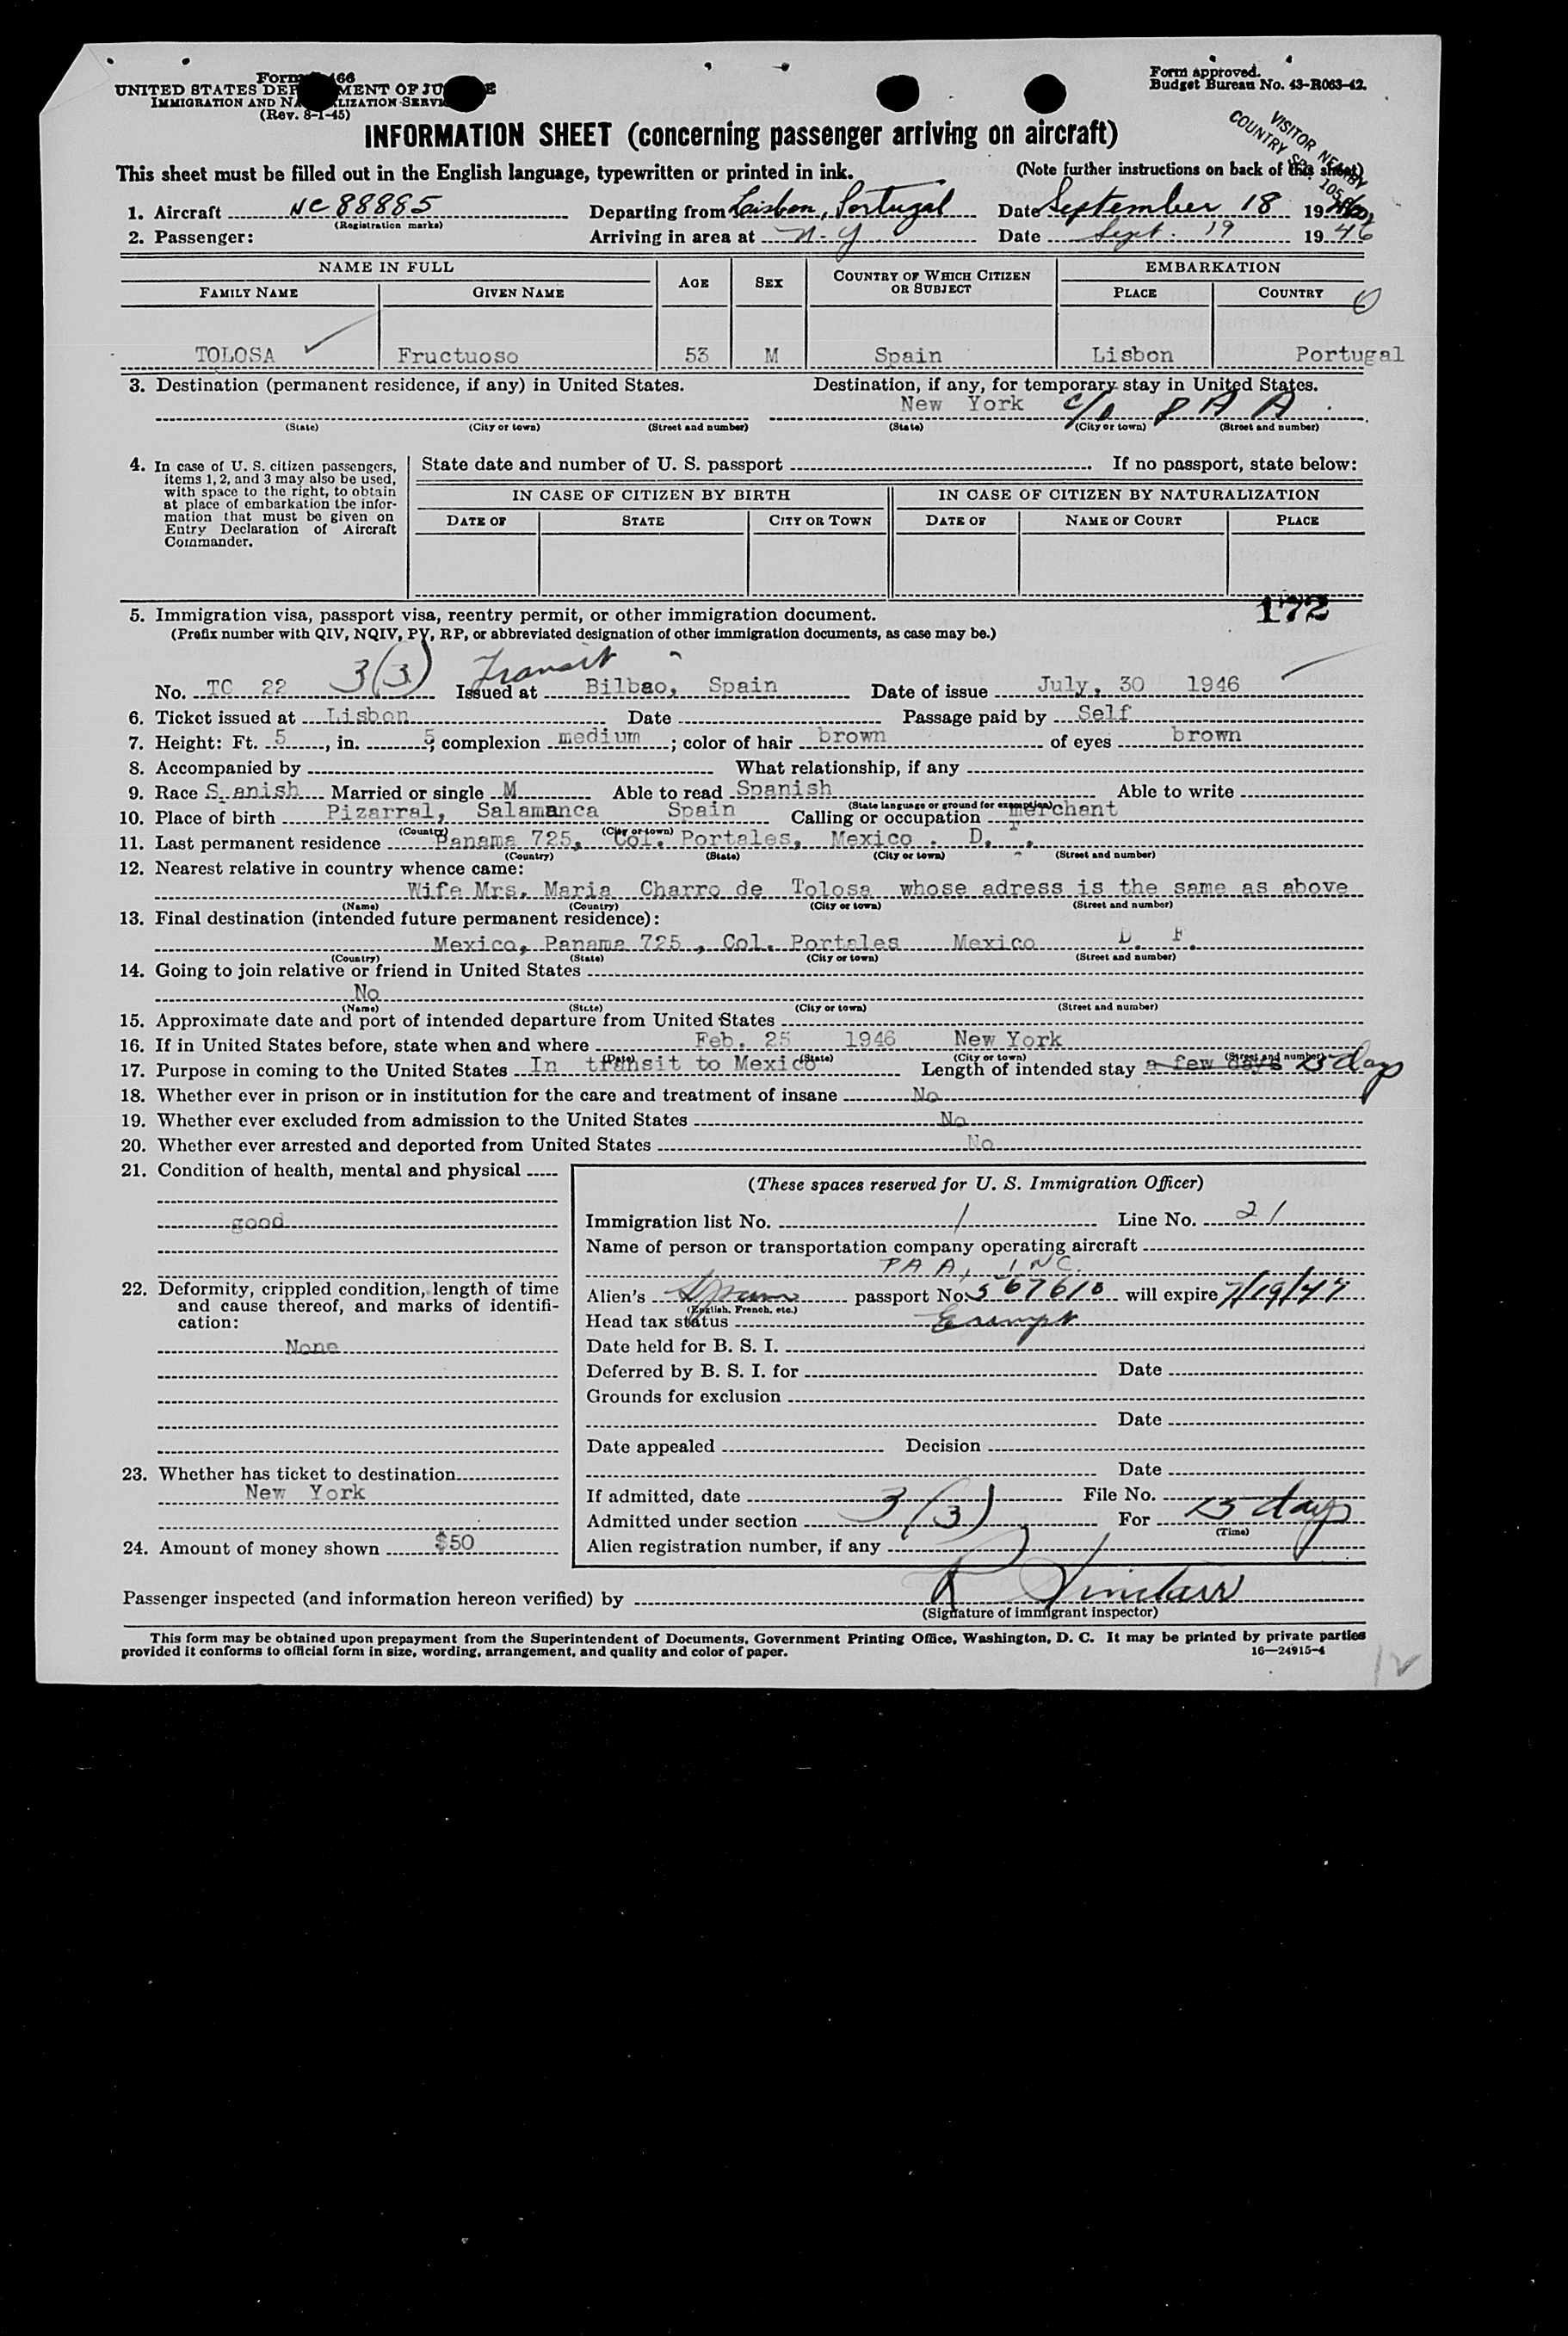 Form 466
UNITED STATES DEPARTMENT OF JUSTICE
IMMIGRATION AND NATURALIZATION SERVICE
(Rev. 8-1-45)
Form approved.
Budget Bureau No. 43-R063-42.
VISITOR NEARBY
COUNTRY
INFORMATION SHEET (concerning passenger arriving on aircraft)
This sheet must be filled out in the English language, typewritten or printed in ink. (Note further instructions on back of this sheet)
1. Aircraft NC 88885 Departing from Lisbon, Portugal Date September 18 19
(Registration marks)
2. Passenger: Arriving in area at N-Y Date Sept. 19 1946
NAME IN FULL AGE SEX COUNTRY OF WHICH CITIZEN OR SUBJECT EMBARKATION
FAMILY NAME GIVEN NAME PLACE COUNTRY
TOLOSA Fructuoso 53 M Spain Lisbon Portugal
3. Destination (permanent residence, if any) in United States. Destination, if any, for temporary stay in United States.
New York c/o P A A
(State) (City or town) (Street and number) (State) (City or town) (Street and number)
4. In case of U. S. citizen passengers, items 1, 2, and 3 may also be used, with space to the right, to obtain at place of embarkation the information that must be given on Entry Declaration of Aircraft Commander.
State date and number of U. S. passport If no passport, state below:
IN CASE OF CITIZEN BY BIRTH IN CASE OF CITIZEN BY NATURALIZATION
DATE OF STATE CITY OR TOWN DATE OF NAME OF COURT PLACE
172
5. Immigration visa, passport visa, reentry permit, or other immigration document.
(Prefix number with QIV, NQIV, PV, RP, or abbreviated designation of other immigration documents, as case may be.)
3(3) Transit
No. TC 22 Issued at Bilbao, Spain Date of issue July, 30 1946
6. Ticket issued at Lisbon Date Passage paid by Self
7. Height: Ft. 5, in. 5; complexion medium; color of hair brown of eyes brown
8. Accompanied by What relationship, if any
9. Race S anish Married or single M Able to read Spanish Able to write
(State language or ground for exemption)
10. Place of birth Pizarral, Salamanca Spain Calling or occupation merchant
(Country) (City or town)
11. Last permanent residence Panama 725, Col. Portales, Mexico . D. F.
(Country) (State) (City or town) (Street and number)
12. Nearest relative in country whence came:
Wife Mrs. Maria Charro de Tolosa whose adress is the same as above
(Name) (Country) (City or town) (Street and number)
13. Final destination (intended future permanent residence):
Mexico, Panama 725 , Col. Portales Mexico D. F.
(Country) (State) (City or town) (Street and number)
14. Going to join relative or friend in United States
No
(Name) (State) (City or town) (Street and number)
15. Approximate date and port of intended departure from United States
16. If in United States before, state when and where Feb. 25 1946 New York
(Date) (State) (City or town) (Street and number)
17. Purpose in coming to the United States In transit to Mexico Length of intended stay a few days 15 days
18. Whether ever in prison or in institution for the care and treatment of insane No
19. Whether ever excluded from admission to the United States No
20. Whether ever arrested and deported from United States No
21. Condition of health, mental and physical
good
22. Deformity, crippled condition, length of time and cause thereof, and marks of identification:
None
23. Whether has ticket to destination
New York
24. Amount of money shown $50
(These spaces reserved for U. S. Immigration Officer)
Immigration list No. 1 Line No. 21
Name of person or transportation company operating aircraft
PAA, INC.
Alien's passport No. 567610 will expire 7/19/47
(English, French, etc.)
Head tax status Exempt
Date held for B. S. I.
Deferred by B. S. I. for Date
Grounds for exclusion
Date
Date appealed Decision
Date
If admitted, date File No.
Admitted under section 3(3) For 15 days
(Time)
Alien registration number, if any
Passenger inspected (and information hereon verified) by R Sinclair
(Signature of immigrant inspector)
This form may be obtained upon prepayment from the Superintendent of Documents, Government Printing Office, Washington, D. C. It may be printed by private parties
provided it conforms to official form in size, wording, arrangement, and quality and color of paper. 16—24915-4